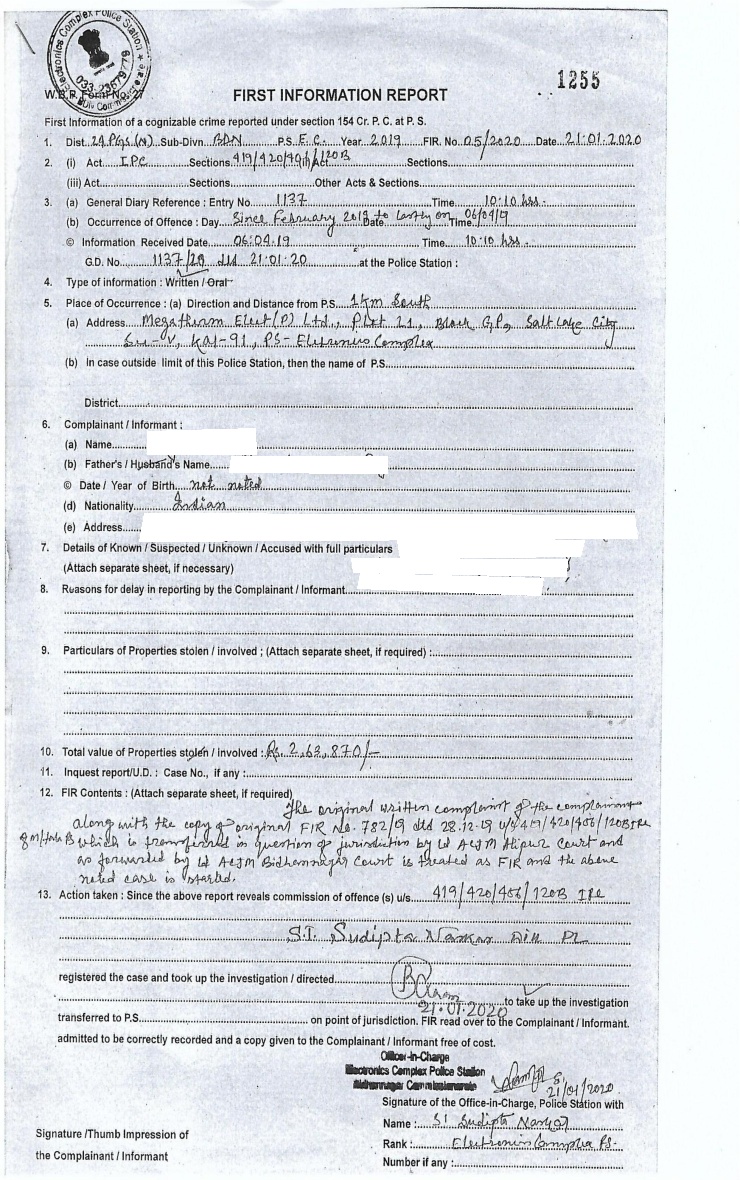 Electronics Complex Police Station
033-23679779
1255
W.B.P. Form No. 27
FIRST INFORMATION REPORT
First Information of a cognizable crime reported under section 154 Cr. P. C. at P. S.
1. Dist. 24 Pgs (N) Sub-Divn. BDN P.S. E.C. Year 2019 FIR. No. 05/2020 Date 21.01.2020
2. (i) Act. IPC Sections 419/420/406/120B Sections
(iii) Act Sections Other Acts & Sections
3. (a) General Diary Reference : Entry No 1137 Time 10:10 hrs.
(b) Occurrence of Offence : Day Since February 2019 to lastly on Date Time 06/04/19
© Information Received Date 06.04.19 Time 10:10 hrs.
G.D. No. 1137/20 dtd 21.01.20 at the Police Station :
4. Type of information : Written / Oral
5. Place of Occurrence : (a) Direction and Distance from P.S. 1km South
(a) Address Megatherm Elect (P) Ltd., Plot 21, Block GP, Salt Lake City
Sec-V, Kol-91, PS- Electronics Complex
(b) In case outside limit of this Police Station, then the name of P.S.
District
6. Complainant / Informant :
(a) Name
(b) Father's / Husband's Name
© Date / Year of Birth not noted
(d) Nationality Indian
(e) Address
7. Details of Known / Suspected / Unknown / Accused with full particulars
(Attach separate sheet, if necessary)
8. Reasons for delay in reporting by the Complainant / Informant
9. Particulars of Properties stolen / involved ; (Attach separate sheet, if required) :
10. Total value of Properties stolen / involved : Rs. 2,63,870/-
11. Inquest report/U.D. : Case No., if any :
12. FIR Contents : (Attach separate sheet, if required)
The original written complaint of the complainant
along with the copy of original FIR No. 782/19 dtd 28.12.19 u/s 419/420/406/120B IPC
which is transferred in question of jurisdiction by Ld ACJM Alipur Court and
as forwarded by Ld ACJM Bidhannagar Court is treated as FIR and the above
noted case is started.
13. Action taken : Since the above report reveals commission of offence (s) u/s 419/420/406/120B IPC
S.I. Sudipta Naskar
registered the case and took up the investigation / directed
21.01.2020 to take up the investigation
transferred to P.S. on point of jurisdiction. FIR read over to the Complainant / Informant.
admitted to be correctly recorded and a copy given to the Complainant / Informant free of cost.
Officer-in-Charge
Electronics Complex Police Station
Bidhannagar Commissionerate
21/01/2020
Signature of the Office-in-Charge, Police Station with
Name : SI Sudipta Naskar
Rank : Electronics Complex PS.
Number if any :
Signature /Thumb Impression of
the Complainant / Informant